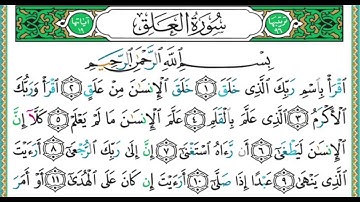 سُورَةُ ٱلْعَلَقِ
بِسْمِ ٱللَّهِ ٱلرَّحْمَٰنِ ٱلرَّحِيمِ
ٱقْرَأْ بِٱسْمِ رَبِّكَ ٱلَّذِى خَلَقَ ١ خَلَقَ ٱلْإِنسَٰنَ مِنْ عَلَقٍ ٢ ٱقْرَأْ وَرَبُّكَ
ٱلْأَكْرَمُ ٣ ٱلَّذِى عَلَّمَ بِٱلْقَلَمِ ٤ عَلَّمَ ٱلْإِنسَٰنَ مَا لَمْ يَعْلَمْ ٥ كَلَّآ إِنَّ
ٱلْإِنسَٰنَ لَيَطْغَىٰٓ ٦ أَن رَّءَاهُ ٱسْتَغْنَىٰٓ ٧ إِنَّ إِلَىٰ رَبِّكَ ٱلرُّجْعَىٰٓ ٨ أَرَءَيْتَ
ٱلَّذِى يَنْهَىٰ ٩ عَبْدًا إِذَا صَلَّىٰٓ ١٠ أَرَءَيْتَ إِن كَانَ عَلَى ٱلْهُدَىٰٓ ١١ أَوْ أَمَرَ